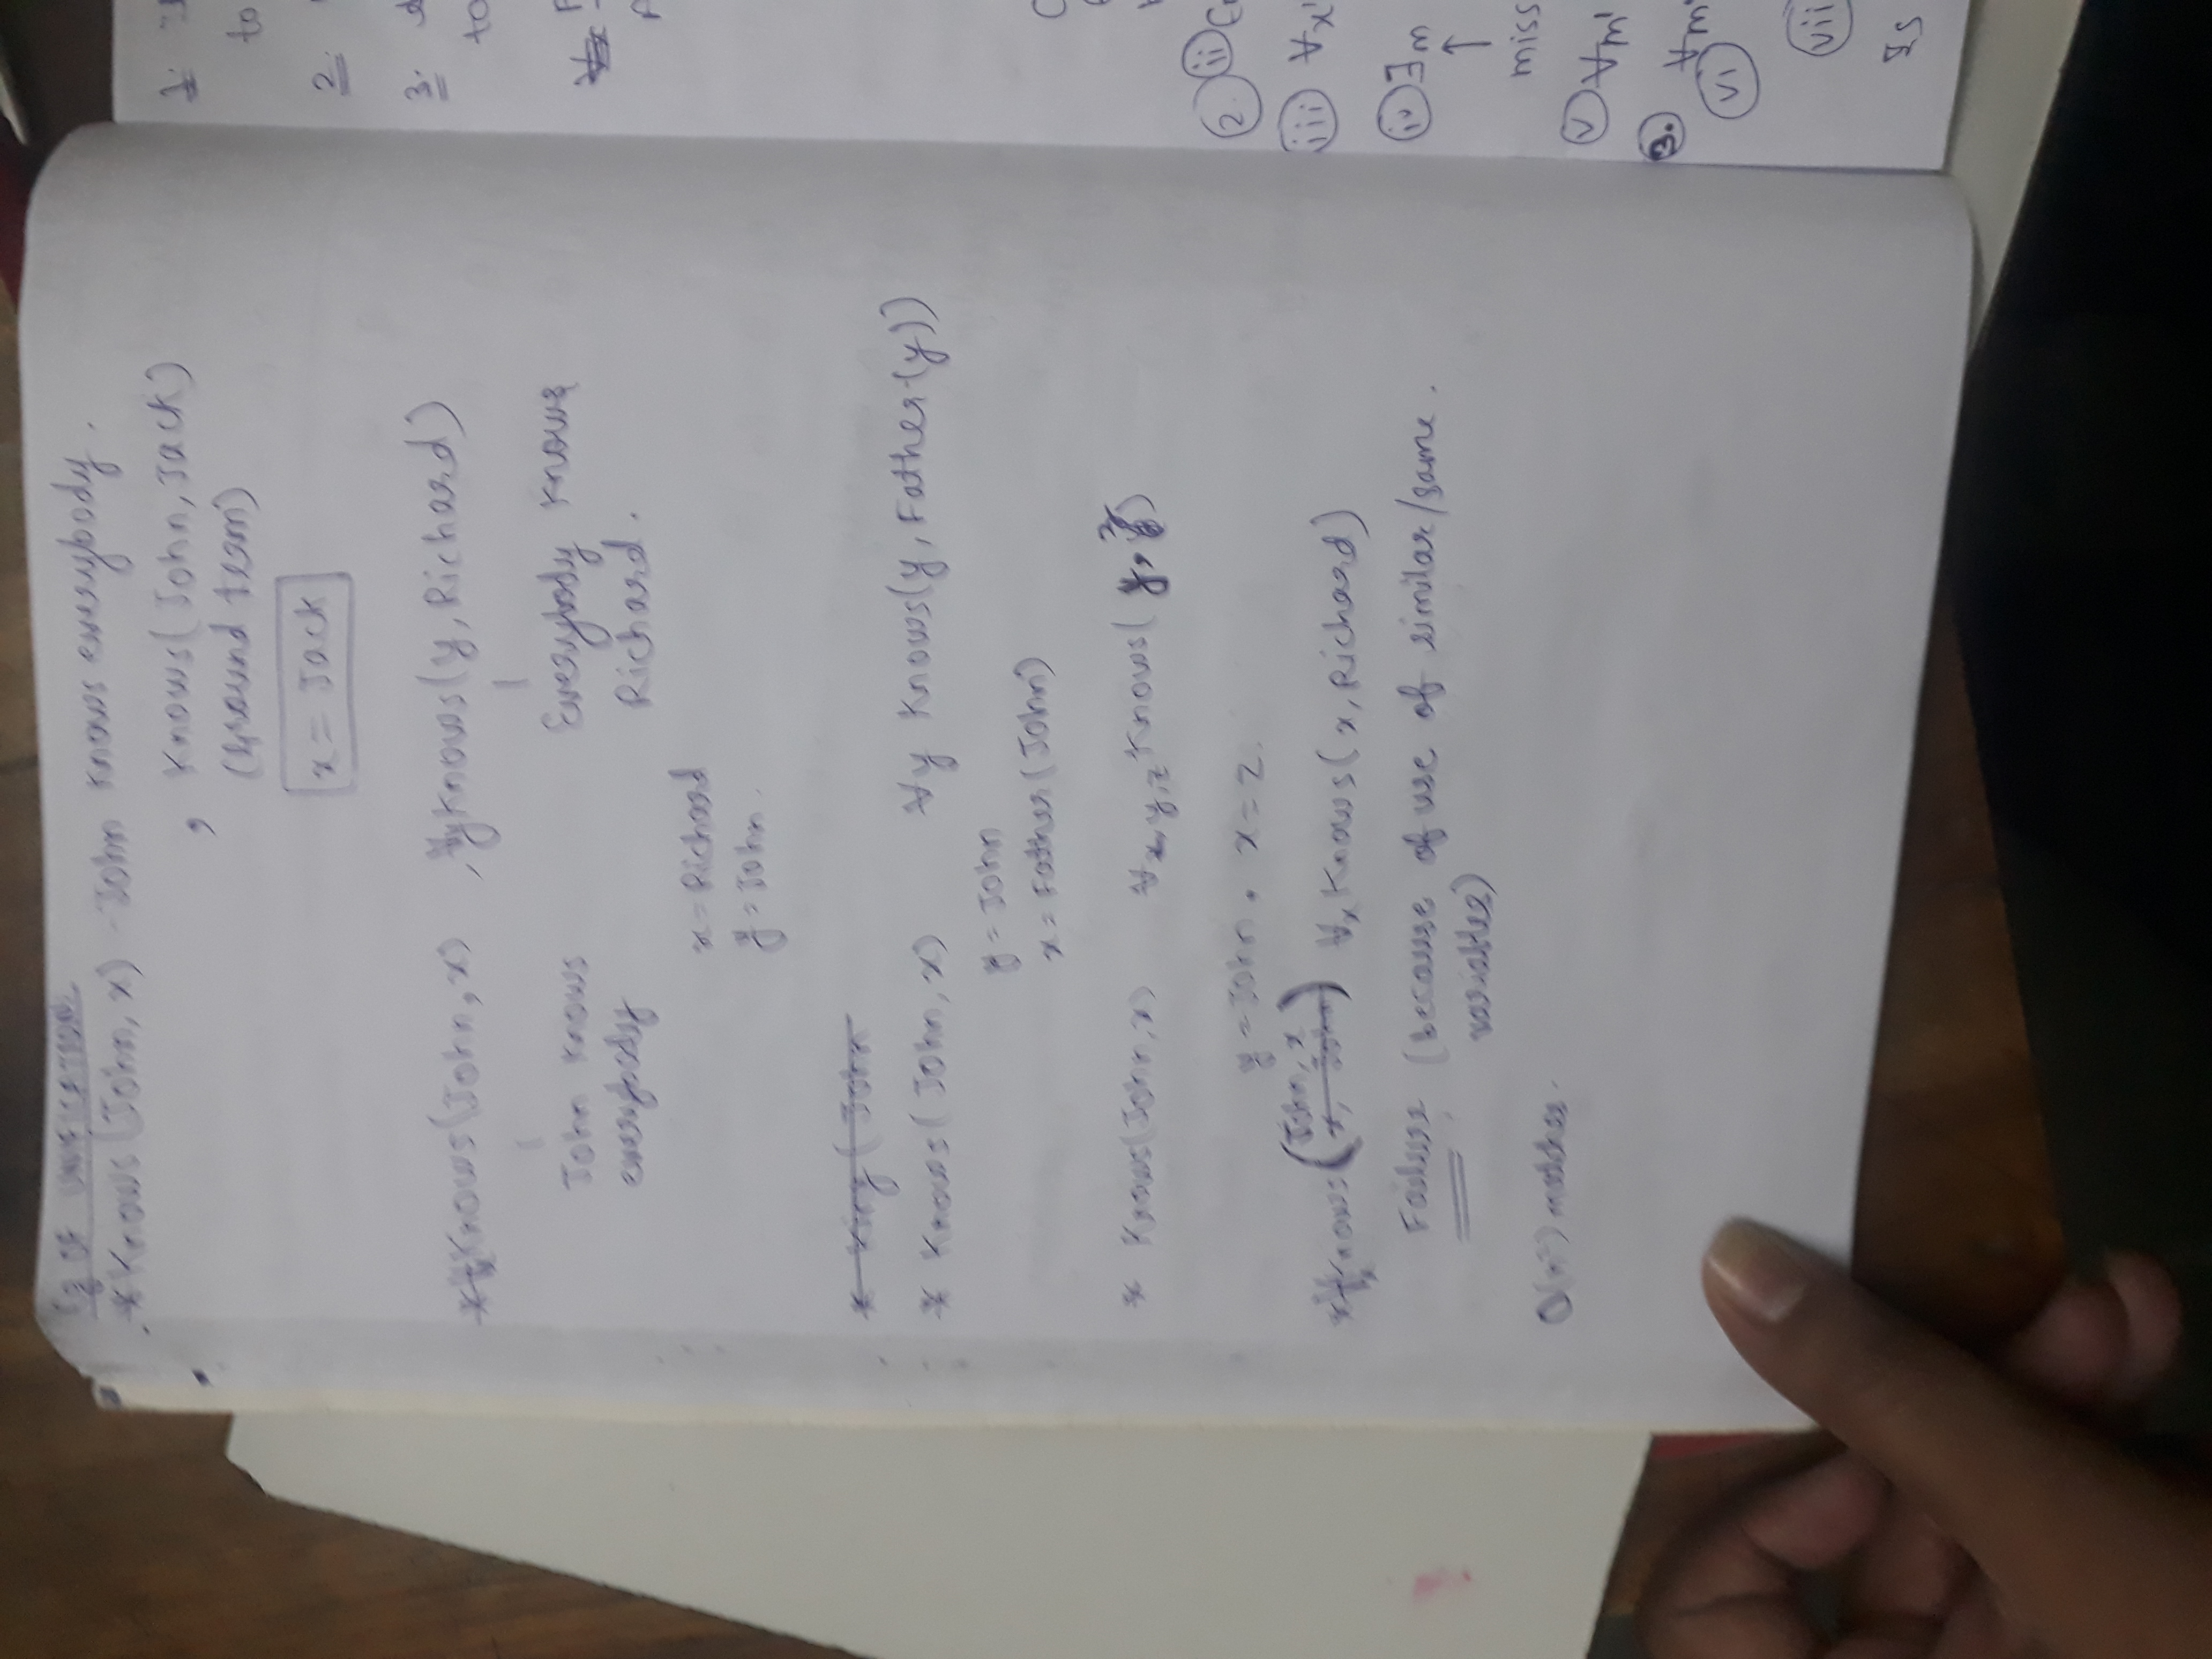 Eg OF UNIFICATION.
* Knows (John, x) - John knows everybody.
, Knows (John, Jack)
(Ground term)
x = Jack
* ∀x Knows (John, x) , ∀y Knows (y, Richard)
John knows everybody
Everybody knows Richard.
x = Richard
y = John.
* King (John
* Knows (John, x) ∀y Knows (y, Father (y))
y = John
x = Father (John)
* Knows (John, x) ∀x, y, z Knows (y, z)
y = John, x = z.
* ∀x Knows (John, x) ∀x Knows (x, Richard)
Failure (because of use of similar/same variables)
O(n²) matches.
1.
to
2.
3.
to
2. ii
iii ∀x
iv ∃m
↓
miss
v ∀m
3.
vi ∀m
vii
IS